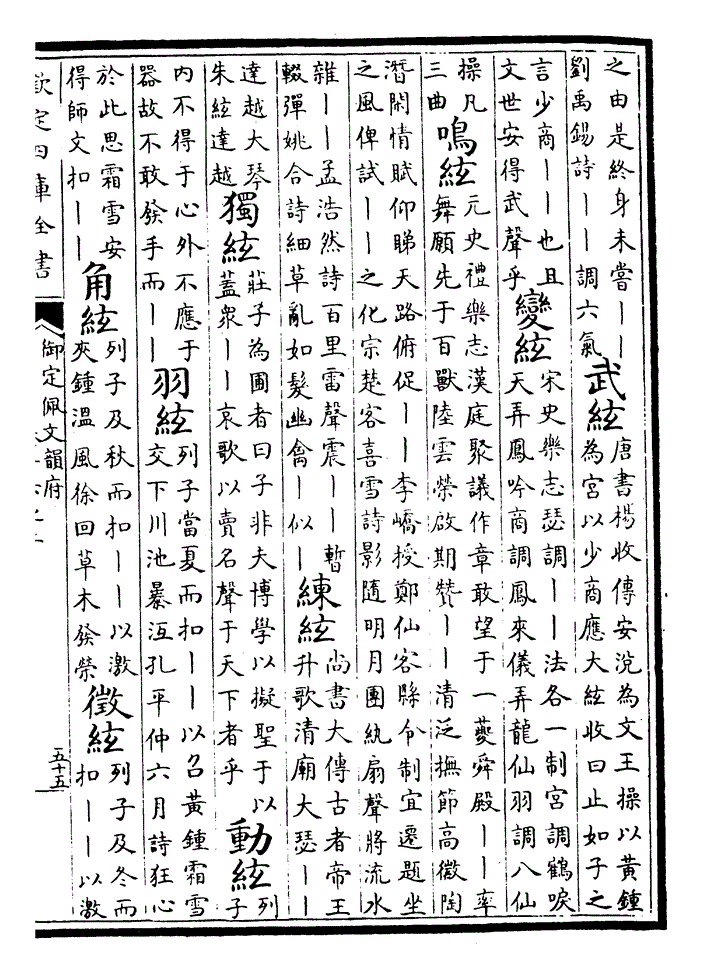 之由是終身未嘗——
劉禹錫詩——調六氣
武絃
唐書楊收傳安涚為文王操以黃鍾
為宮以少商應大絃收曰止如子之
言少商——也且
文世安得武聲乎
變絃
宋史樂志瑟調——法各一制宮調鶴唳
天弄鳳吟商調鳳來儀弄龍仙羽調八仙
操凡
三曲
鳴絃
元史禮樂志漢庭聚議作章敢望于一夔舜殿——率
舞願先于百獸陸雲榮啟期贊——清泛撫節高徽陶
潛閑情賦仰睇天路俯促——李嶠授鄭仙客縣令制宜遷題坐
之風俾試——之化宗楚客喜雪詩影隨明月團紈扇聲將流水
雜——孟浩然詩百里雷聲震——暫
輟彈姚合詩細草亂如髮幽禽—似—
練絃
尚書大傳古者帝王
升歌清廟大瑟——
達越大琴
朱絃達越
獨絃
莊子為圃者曰子非夫博學以擬聖于以
蓋衆——哀歌以賣名聲于天下者乎
動絃
列
子
内不得于心外不應于
器故不敢發手而——
羽絃
列子當夏而扣——以召黃鍾霜雪
交下川池暴沍孔平仲六月詩狂心
於此思霜雪安
得師文扣——
角絃
列子及秋而扣——以激
夾鍾溫風徐回草木發榮
徵絃
列子及冬而
扣——以激
欽定四庫全書
御定佩文韻府
五十五